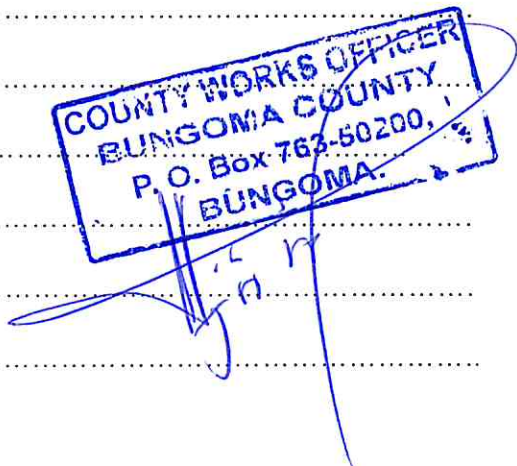 COUNTY WORKS OFFICER
BUNGOMA COUNTY
P. O. Box 763-50200,
BUNGOMA.